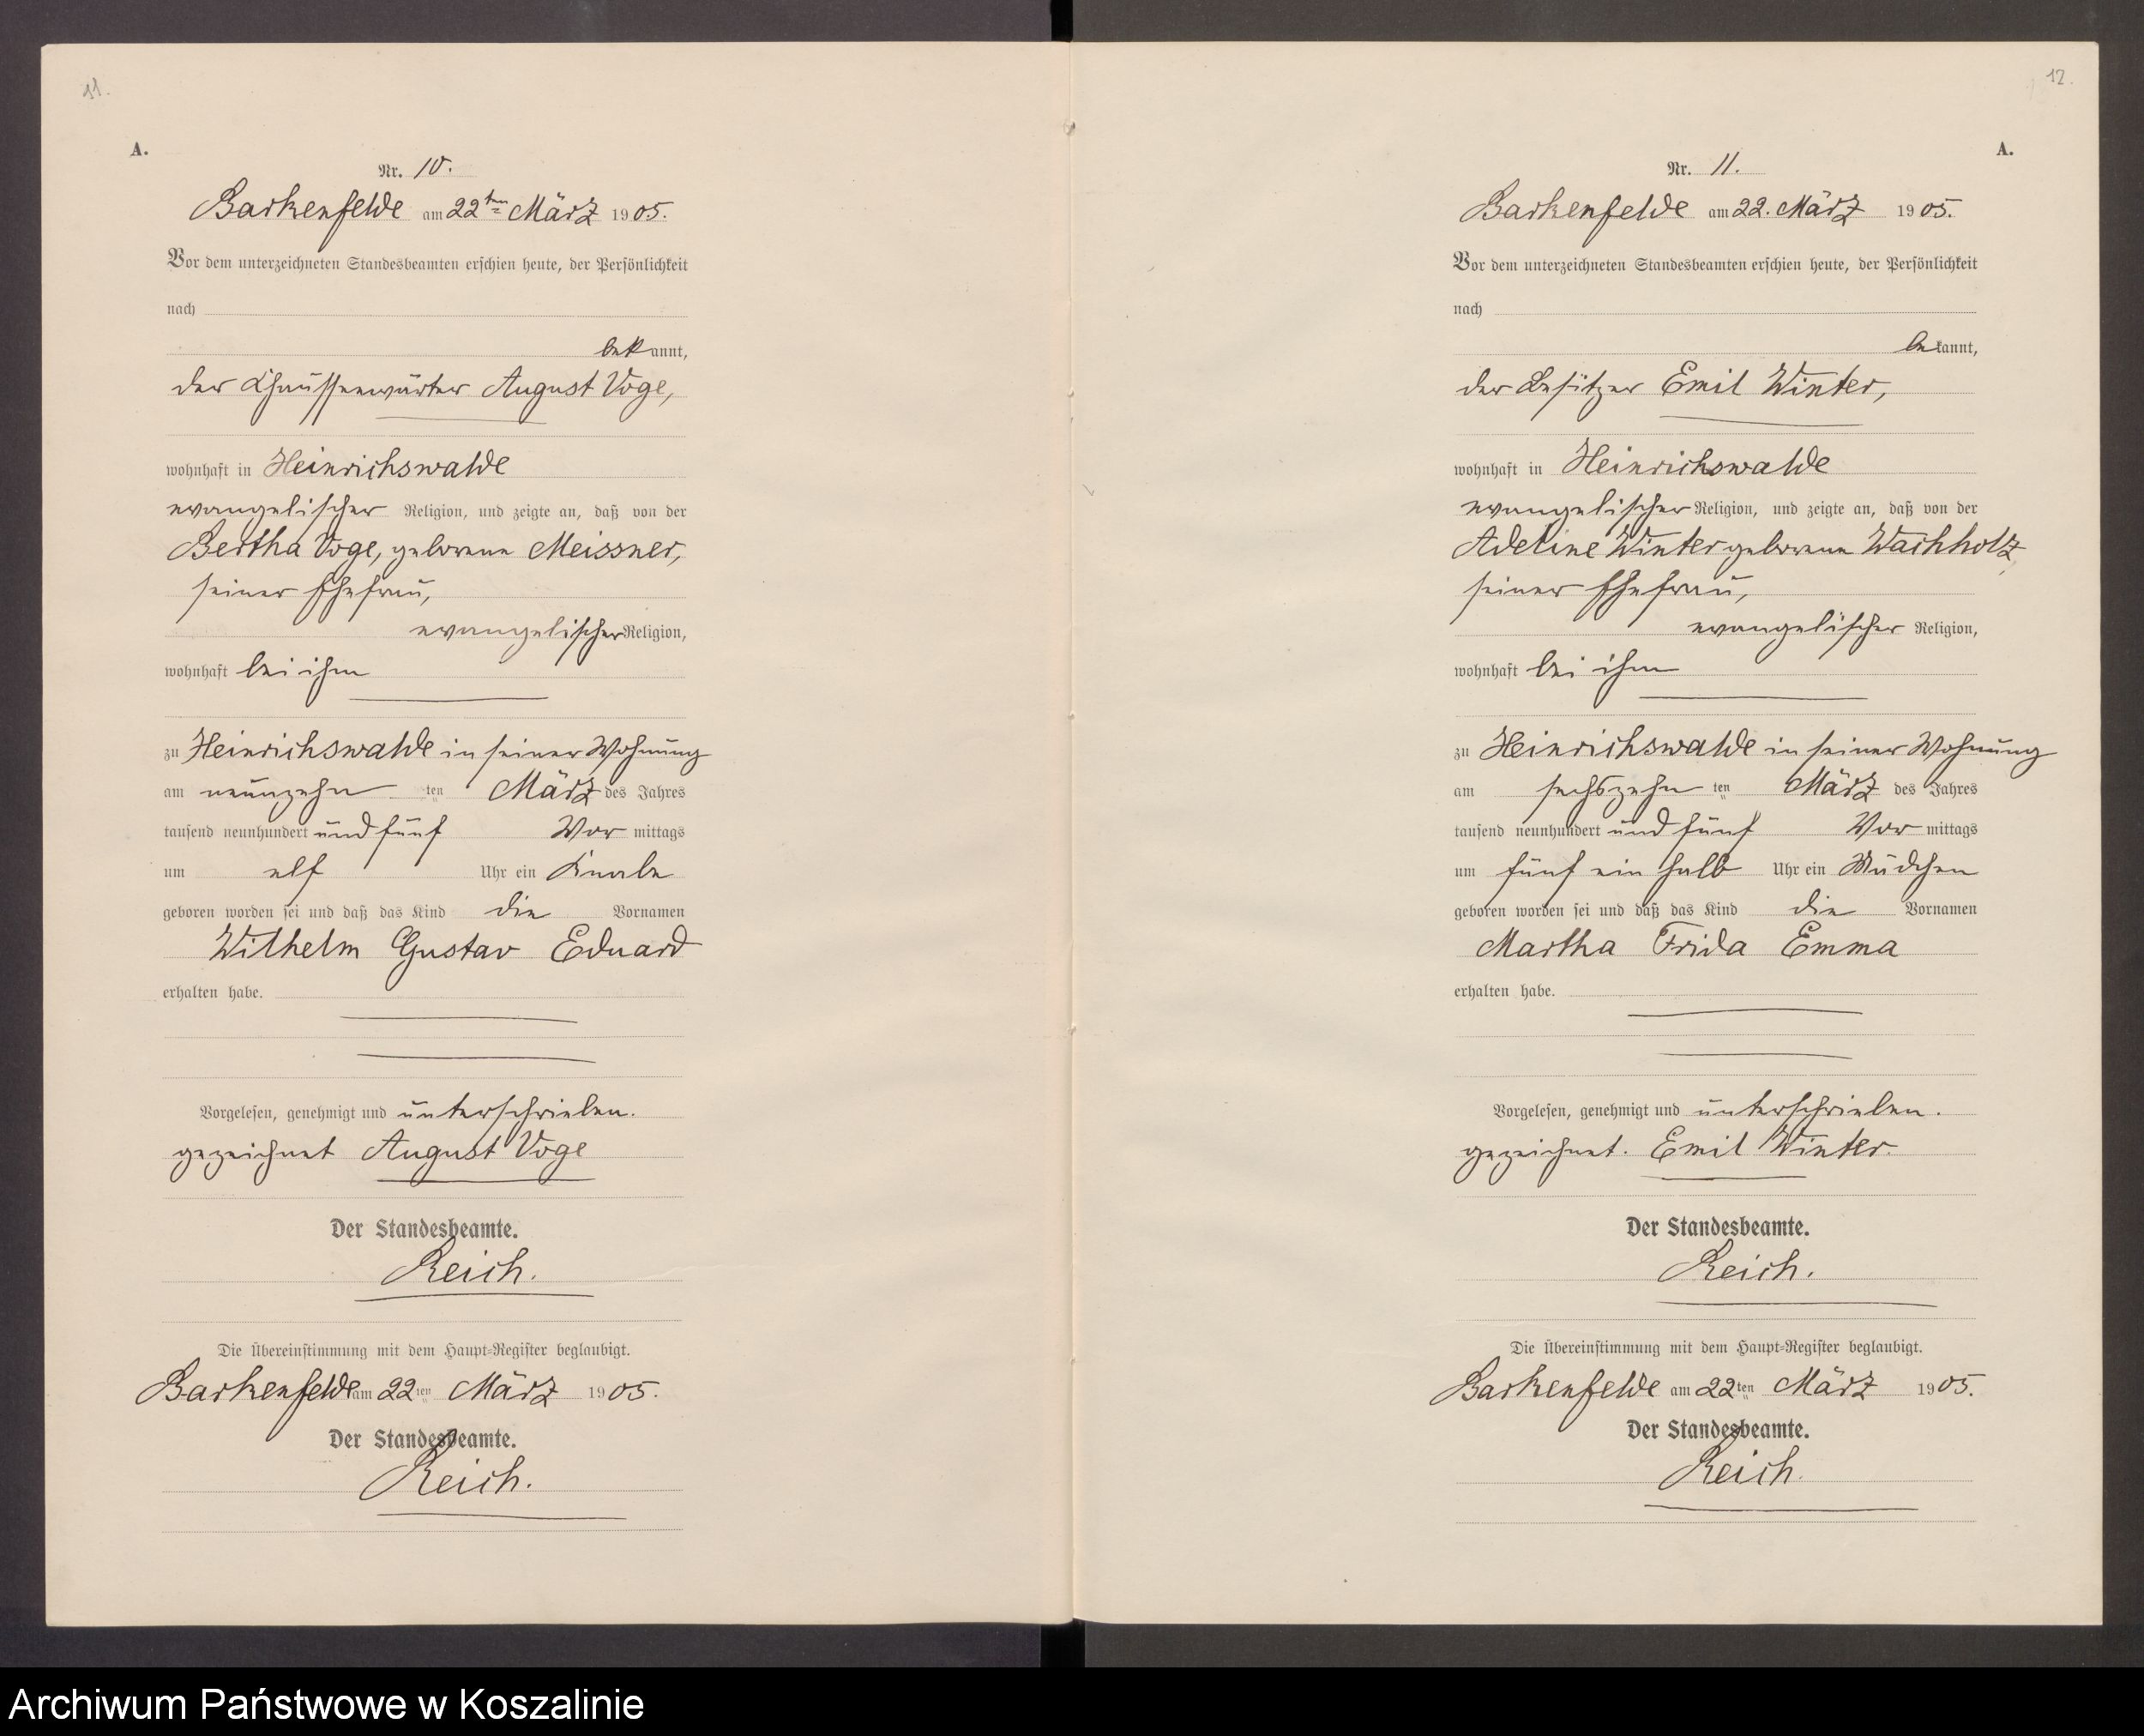 11.
A.
Nr. 10.
Barkenfelde am 22ten März 1905.
Vor dem unterzeichneten Standesbeamten erschien heute, der Persönlichkeit
nach
bekannt,
der Chausseewärter August Voge,
wohnhaft in Heinrichswalde
evangelischer Religion, und zeigte an, daß von der
Bertha Voge, geborene Meissner,
seiner Ehefrau,
evangelischer Religion,
wohnhaft bei ihm
zu Heinrichswalde in seiner Wohnung
am neunzehn ten März des Jahres
tausend neunhundert und fünf Vor mittags
um elf Uhr ein Knabe
geboren worden sei und daß das Kind die Vornamen
Wilhelm Gustav Eduard
erhalten habe.
Vorgelesen, genehmigt und unterschrieben.
gezeichnet August Voge
Der Standesbeamte.
Reich.
Die Übereinstimmung mit dem Haupt-Register beglaubigt.
Barkenfelde am 22ten März 1905.
Der Standesbeamte.
Reich.
12.
A.
Nr. 11.
Barkenfelde am 22. März 1905.
Vor dem unterzeichneten Standesbeamten erschien heute, der Persönlichkeit
nach
bekannt,
der Besitzer Emil Winter,
wohnhaft in Heinrichswalde
evangelischer Religion, und zeigte an, daß von der
Adeline Winter geborene Wachholz,
seiner Ehefrau,
evangelischer Religion,
wohnhaft bei ihm
zu Heinrichswalde in seiner Wohnung
am sechszehn ten März des Jahres
tausend neunhundert und fünf Vor mittags
um fünf ein halb Uhr ein Mädchen
geboren worden sei und daß das Kind die Vornamen
Martha Frida Emma
erhalten habe.
Vorgelesen, genehmigt und unterschrieben.
gezeichnet. Emil Winter.
Der Standesbeamte.
Reich.
Die Übereinstimmung mit dem Haupt-Register beglaubigt.
Barkenfelde am 22ten März 1905.
Der Standesbeamte.
Reich.
Archiwum Państwowe w Koszalinie